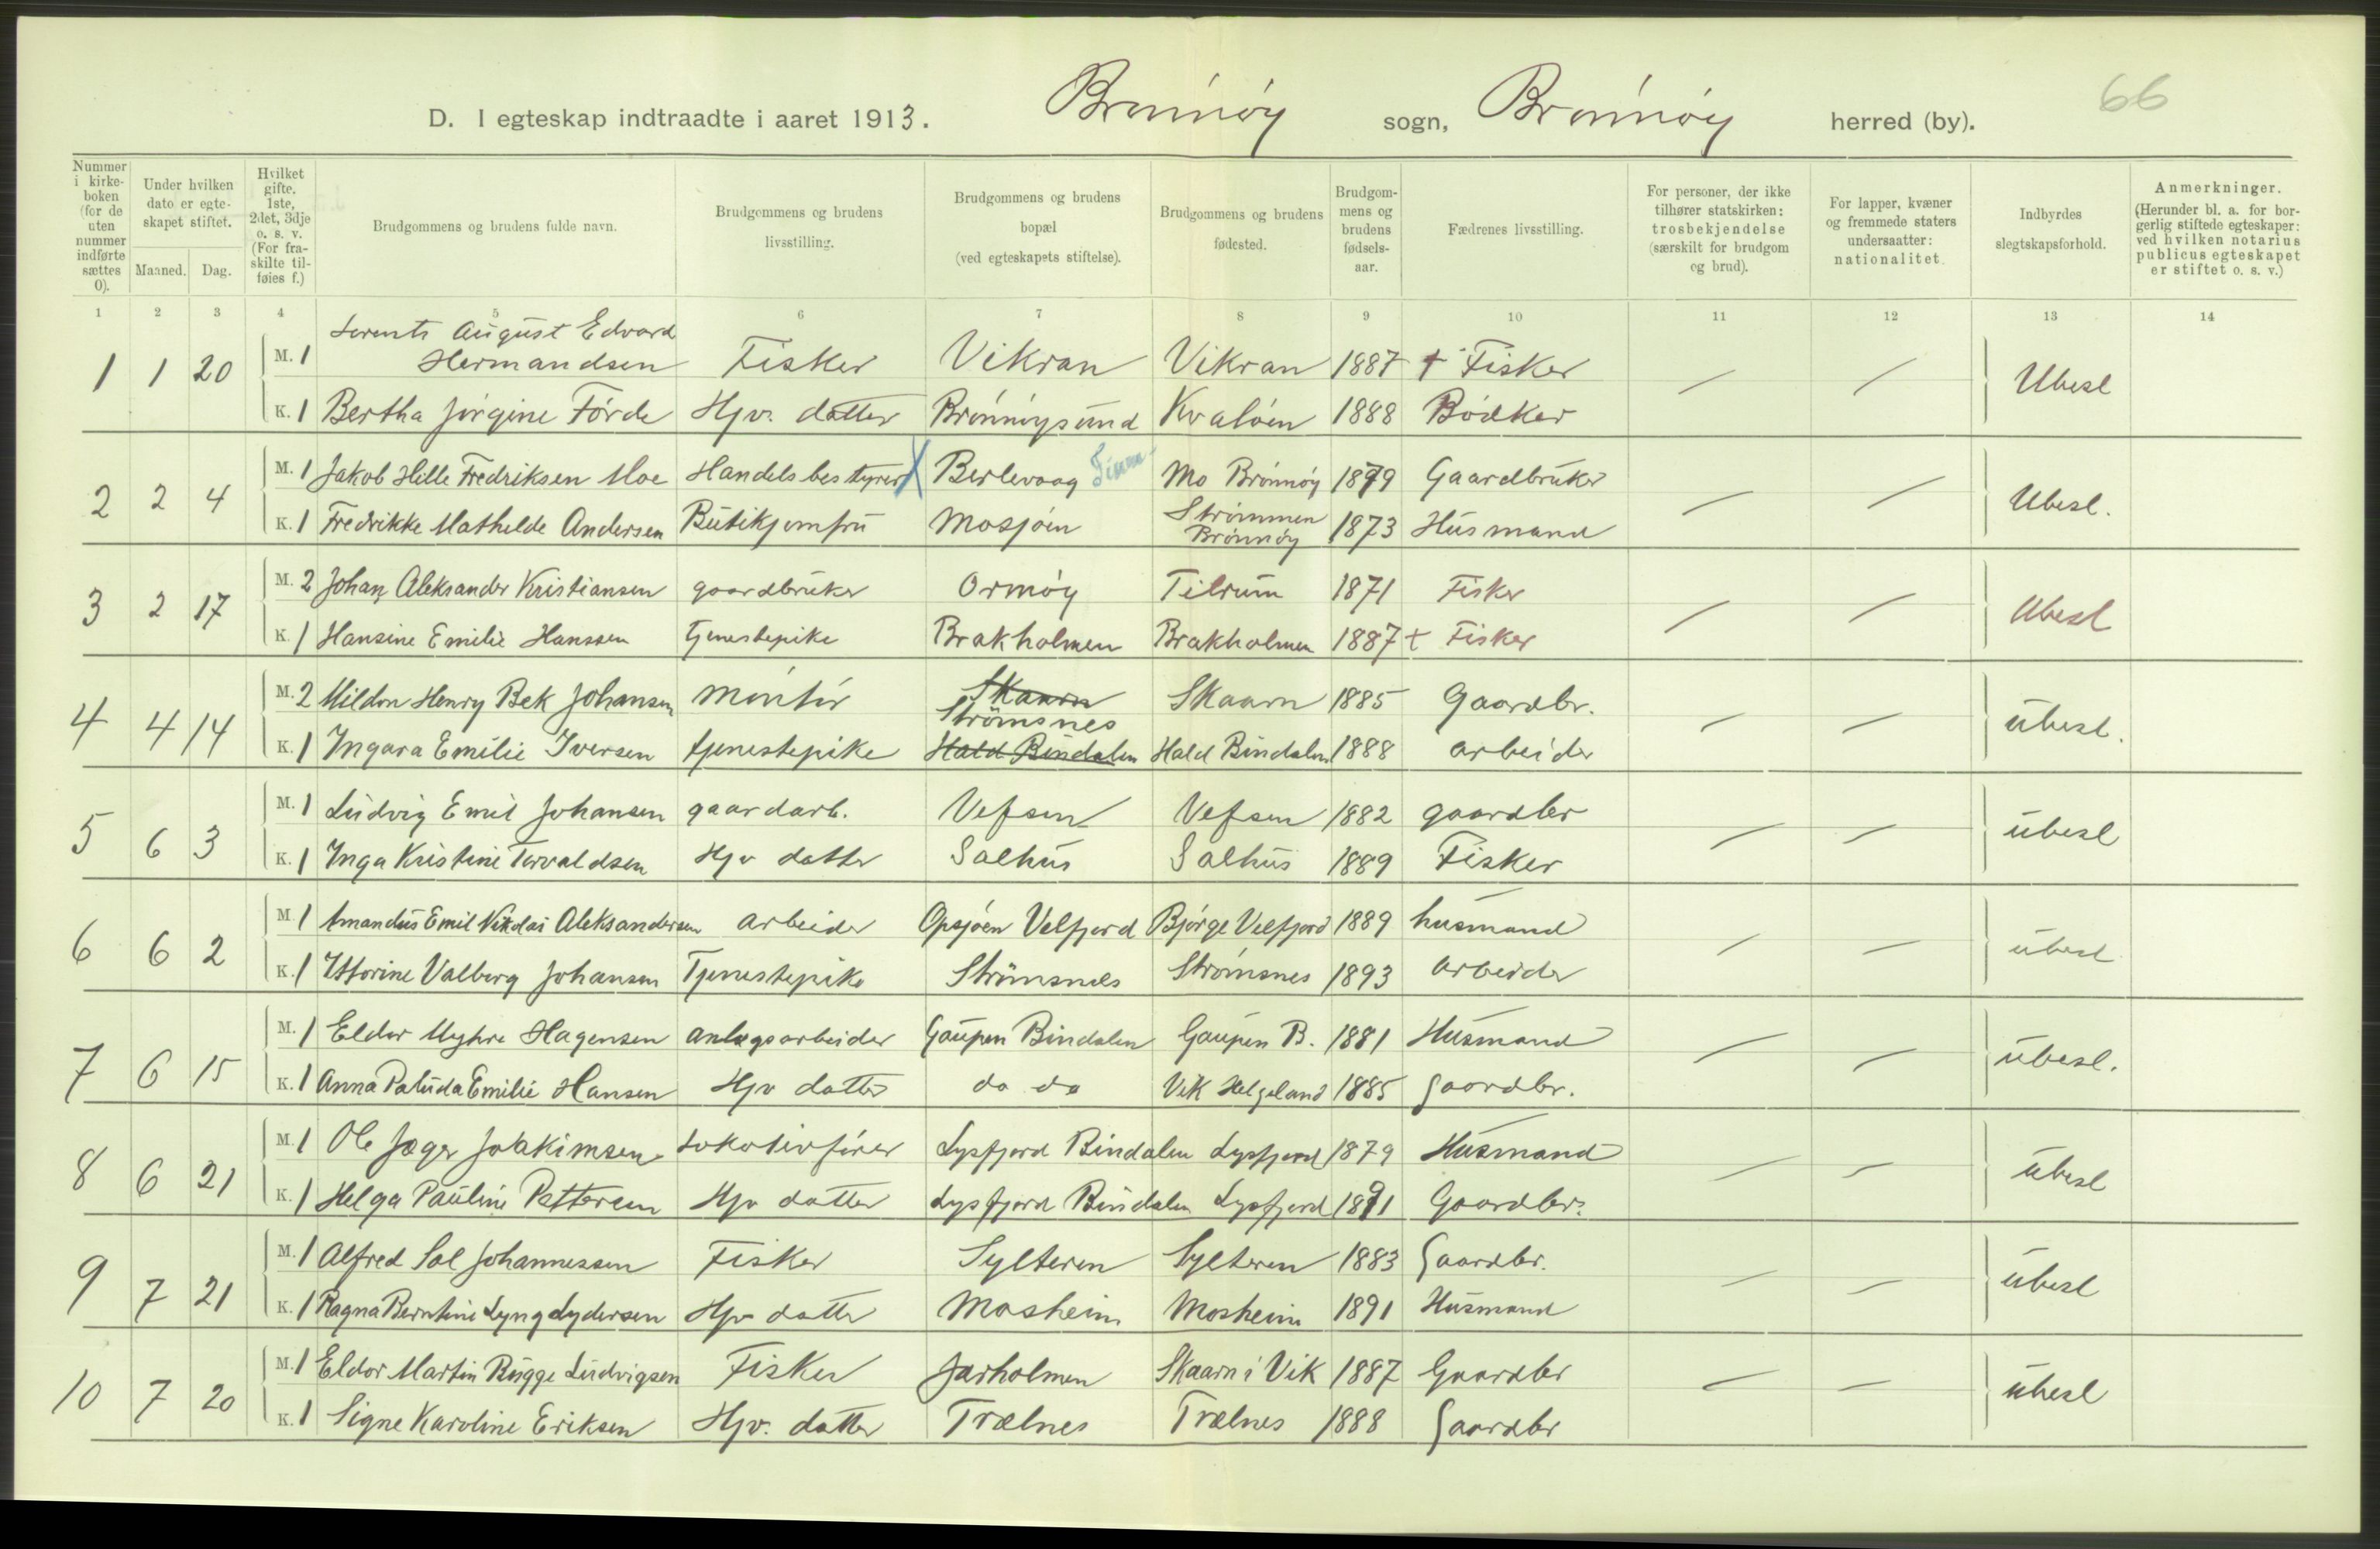 66
D. I egteskap indtraadte i aaret 1913. Brønnøy sogn, Brønnøy herred (by).
Nummer i kirke-boken (for de uten nummer indførte sættes 0). | Under hvilken dato er egte-skapet stiftet. Maaned. Dag. | Hvilket gifte. 1ste, 2det, 3dje o. s. v. (For fra-skilte til-føies f.) | Brudgommens og brudens fulde navn. | Brudgommens og brudens livsstilling. | Brudgommens og brudens bopæl (ved egteskapets stiftelse). | Brudgommens og brudens fødested. | Brudgom-mens og brudens fødsels-aar. | Fædrenes livsstilling. | For personer, der ikke tilhører statskirken: trosbekjendelse (særskilt for brudgom og brud). | For lapper, kvæner og fremmede staters undersaatter: nationalitet. | Indbyrdes slegtskapsforhold. | Anmerkninger. (Herunder bl. a. for bor-gerlig stiftede egteskaper: ved hvilken notarius publicus egteskapet er stiftet o. s. v.)
1 2 3 4 5 6 7 8 9 10 11 12 13 14
Lorents August Edvard
1 1 20 M. 1 Hermandsen Fisker Vikran Vikran 1887 + Fisker / / Ubesl
K. 1 Bertha Jørgine Førde Hjv. datter Brønnøysund Kvaløen 1888 Bødker
2 2 4 M. 1 Jakob Hille Fredriksen Moe Handelsbestyrer X Berlevaag Finm- Mo Brønnøy 1879 Gaardbruker / / Ubesl.
K. 1 Fredrikke Mathilde Andersen Butikjomfru Mosjøen Strømmen Brønnøy 1873 Husmand
3 2 17 M. 2 Johan Aleksander Kristiansen gaardbruker Ormøy Tilrum 1871 Fisker / / Ubesl
K. 1 Hansine Emilie Hanssen tjenestepike Brakholmen Brakholmen 1887 + Fisker
4 4 14 M. 2 Mildon Henry Bek Johansen montør Skaarn Strømsnes Skaarn 1885 Gaardbr. / / ubesl.
K. 1 Ingara Emilie Iversen tjenestepike Hald Bindalen Hald Bindalen 1888 arbeider
5 6 3 M. 1 Ludvig Emil Johansen gaardarb. Vefsen Vefsen 1882 gaardbr / / ubesl
K. 1 Inga Kristine Torvaldsen Hjv datter Salhus Salhus 1889 Fisker
6 6 2 M. 1 Amandus Emil Nikolai Aleksandersen arbeider Opsjøen Velfjord Bjørge Velfjord 1889 husmand / / ubesl
K. 1 Valborg Johansen Tjenestepike Strømsnes Strømsnes 1893 arbeider
7 6 15 M. 1 Eldor Myhre Hagensen anlægsarbeider Gaupen Bindalen Gaupen B. 1881 Husmand / / ubesl.
K. 1 Anna Paluda Emilie Hansen Hjv datter do do Vik Helgeland 1885 Gaardbr.
8 6 21 M. 1 Ole Jæger Joakimsen Lokotivfører Lysfjord Bindalen Lysfjord 1879 Husmand / / ubesl
K. 1 Helga Pauline Pettersen Hjv datter Lysfjord Bindalen Lysfjord 1891 Gaardbr.
9 7 21 M. 1 Alfred Sol Johannessen Fisker Sylteren Sylteren 1883 Gaardbr. / / ubesl
K. 1 Ragna Berntine Lyng Lydersen Hjv datter Mosheim Mosheim 1891 Husmand
10 7 20 M. 1 Eldor Martin Bugge Ludvigsen Fisker Jarholmen Skaarn i Vik 1887 Gaardbr / / ubesl
K. 1 Signe Karoline Eriksen Hjv. datter Trælnes Trælnes 1888 Gaardbr